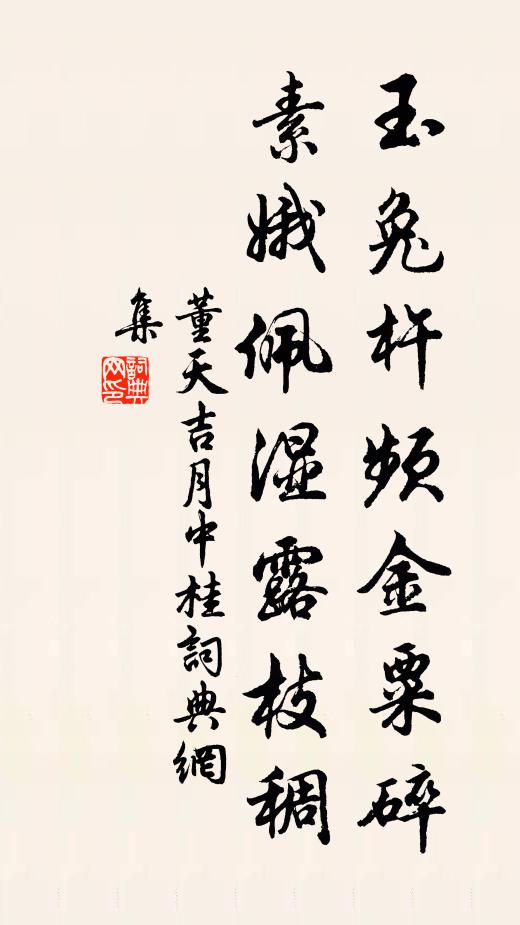 玉兔杵頻金粟碎
素娥佩湿露枝稠
董天吉月中桂詞典網
集
詞典
网印